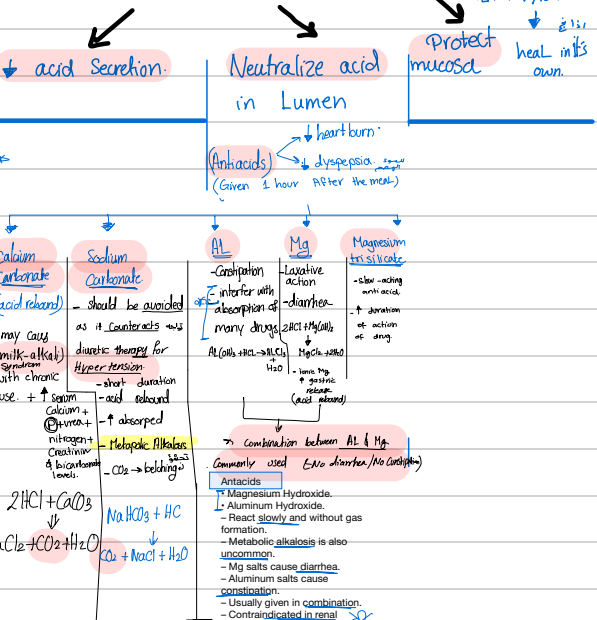 ↓ acid Secretion.
Neutralize acid
in Lumen
Protect
mucosa
heal in it's
own.
(Antiacids)
↓ heart burn.
↓ dyspepsia.
(Given 1 hour After the meal)
Calcium
Carbonate
(acid rebound)
may caus
(milk-alkali)
Syndrom
with chronic
use. + ↑ serum
Calcium +
P + urea +
nitrogen +
Creatinin
& bicarbonate
levels.
2HCl + CaCO3
⇓
CaCl2 + CO2 + H2O
Sodium
Carbonate
- should be avoided
as it counteracts
diuretic therapy for
Hypertension.
- short duration
- acid rebound
- ↑ absorped
- Metapolic Alkalosis
- CO2 → belching
NaHCO3 + HC
↓
CO2 + NaCl + H2O
AL
- Constipation
- interfer with
absorption of
many drugs
AL(OH)3 + HCL → ALCL3
+
H2O
Mg
- Laxative
action
- diarrhea
2HCl + Mg(OH)2
↓
MgCl2 + 2H2O
- ionic Mg
↑ gastric
release
(acid rebound)
Magnesium
trisilicate
- slow - acting
anti acid.
- ↑ duration
of action
of drug.
→ combination between AL & Mg
. Commonly used (No diarrhea/No Constipation)
Antacids
• Magnesium Hydroxide.
• Aluminum Hydroxide.
– React slowly and without gas
formation.
– Metabolic alkalosis is also
uncommon.
– Mg salts cause diarrhea.
– Aluminum salts cause
constipation.
– Usually given in combination.
– Contraindicated in renal